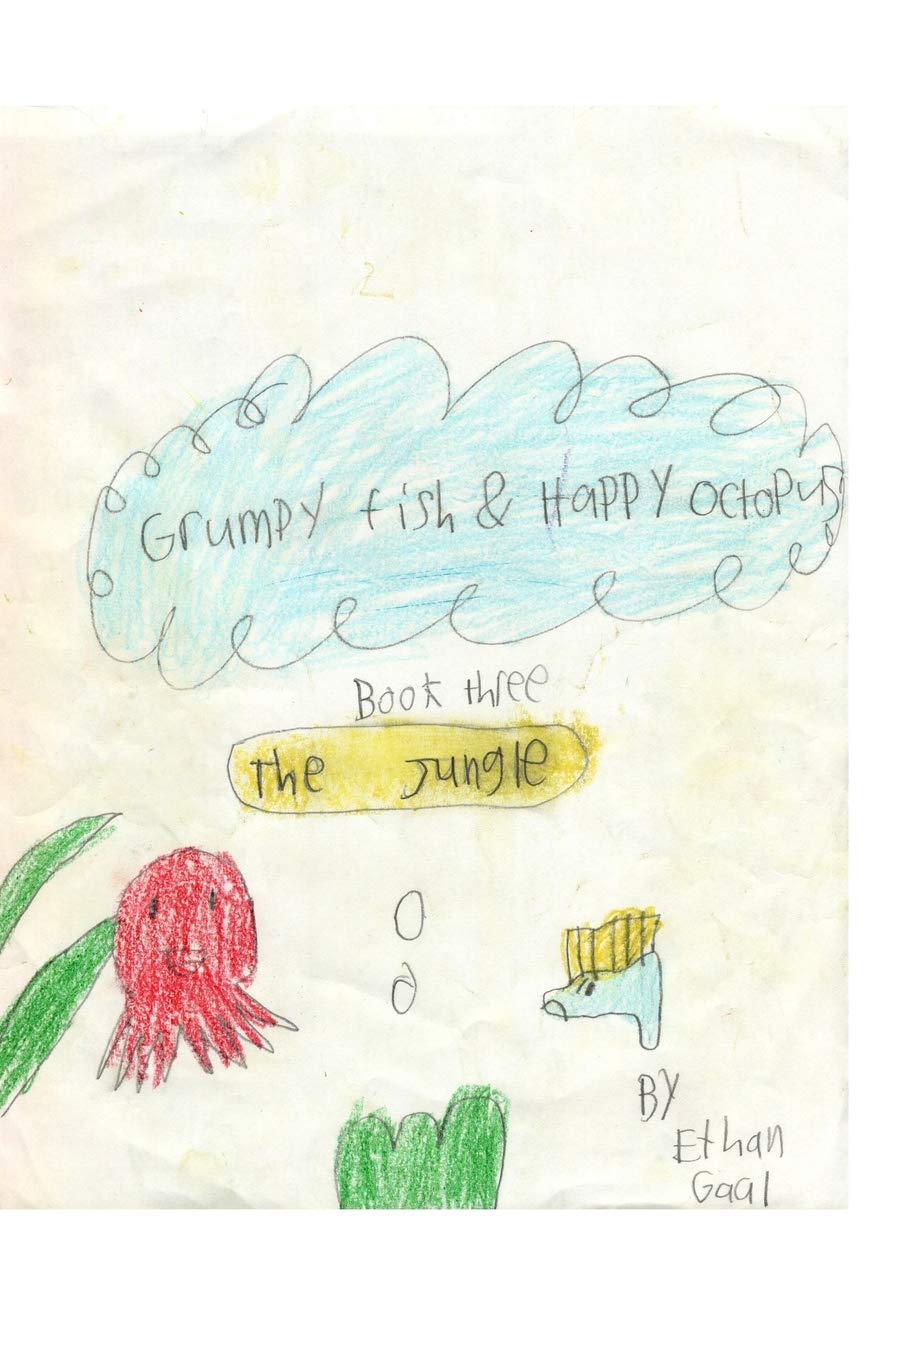 Grumpy fish & Happy octopus
Book three
The Jungle
By
Ethan
Gaal